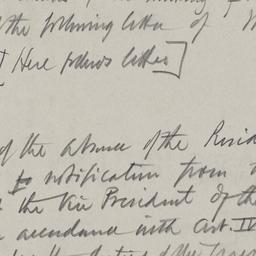 the following letter of
Here follows letter]
of the absence of the Resid
to notification from
the Vice President of the
accordance with Art. IV